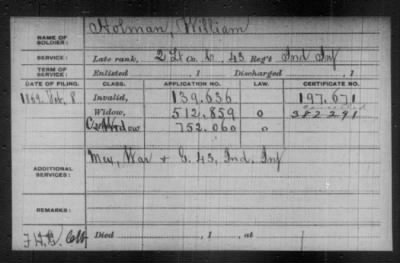 NAME OF SOLDIER: Holman, William
SERVICE: Late rank, 2 Lt Co. C, 43 Reg't Ind Inf
TERM OF SERVICE: Enlisted , 1 Discharged , 1
DATE OF FILING. CLASS. APPLICATION NO. LAW. CERTIFICATE NO.
1869. Feb, 8 Invalid, 139.636 197.671
Widow, 512,859 o 382291
C. Widow 752.060 o
ADDITIONAL SERVICES: Mex, War & G. 43, Ind. Inf
REMARKS:
Died , 1 , at